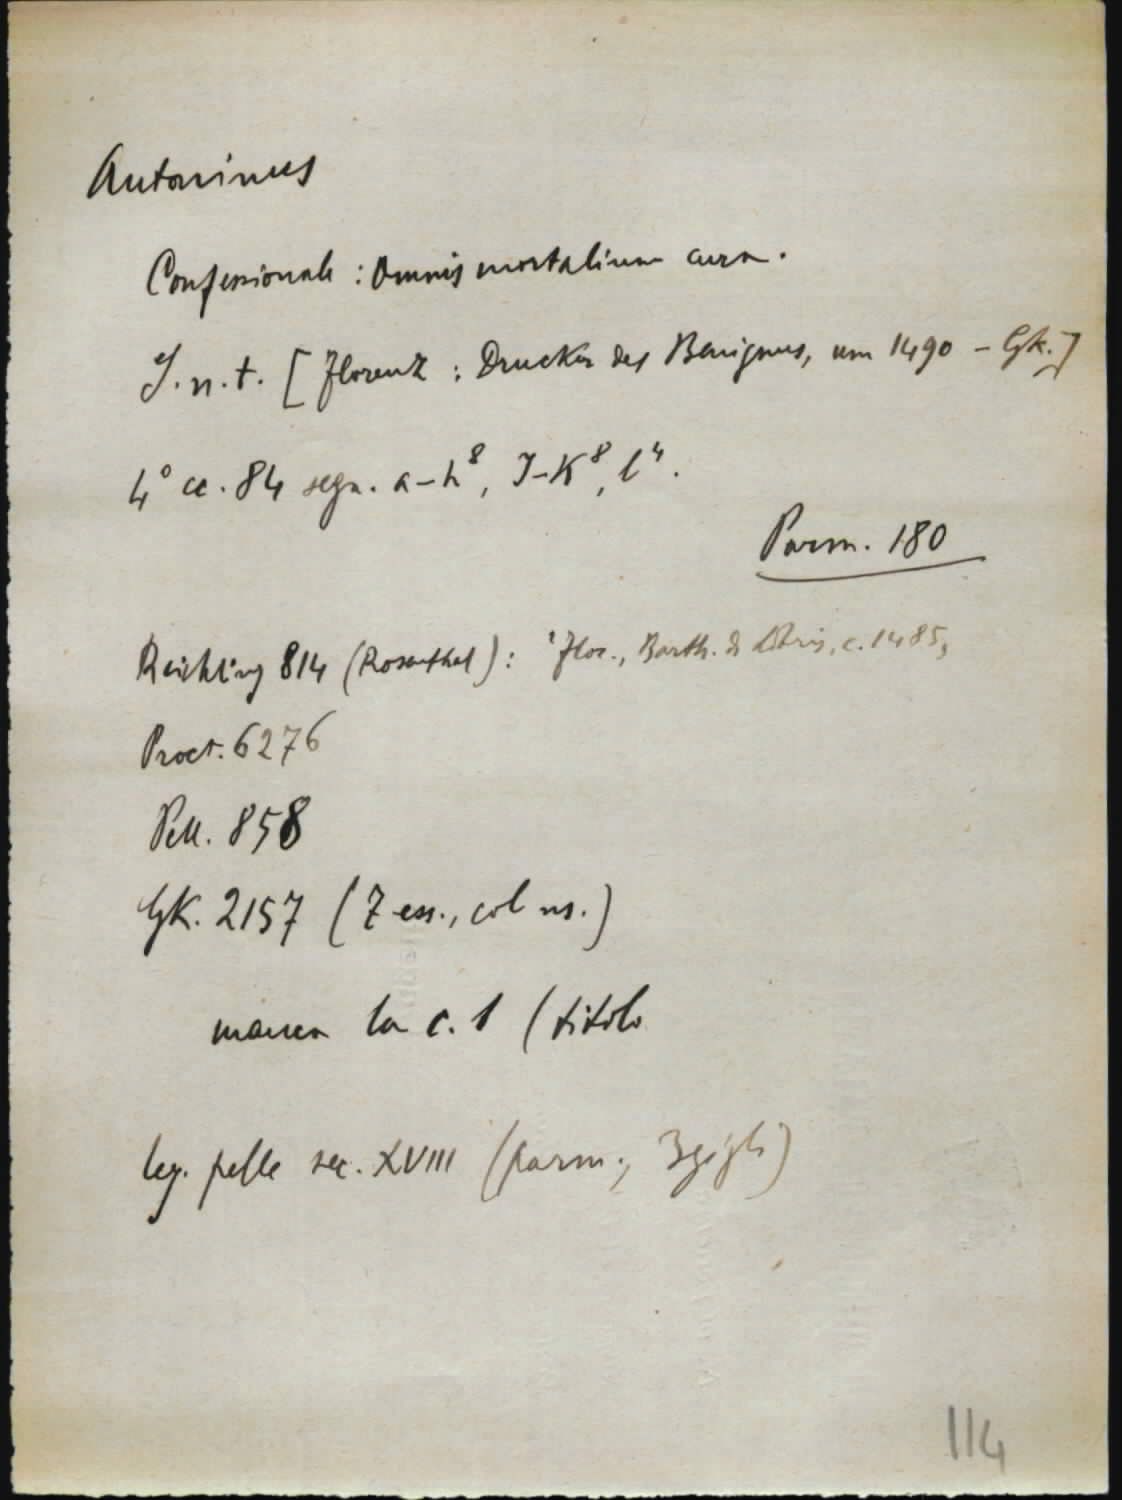 Antoninus
Confessionale : Omnis mortalium cura.
S.n.t. [Florenz : Drucker des Benignus, um 1490 – GK.]
4° cc. 84 segn. a–h⁸, I–K⁸, l⁴.
Parm. 180
Reichling 814 (Rosenthal) : 'Flor., Barth. di Libris, c. 1485,
Proct. 6276
Pell. 858
GK. 2157 (7 es., col ns.)
manca la c. 1 (titolo
leg. pelle sec. XVIII (parm., 3 gigli)
114